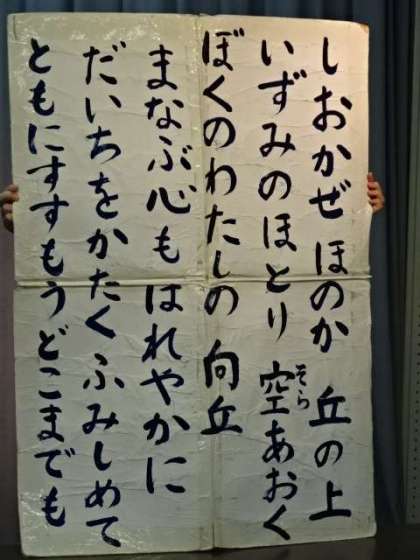 しおかぜ ほのか 丘の上
いずみのほとり 空あおく
そら
ぼくのわたしの 向丘
まなぶ心もはれやかに
だいちをかたくふみしめて
ともにすすもうどこまでも